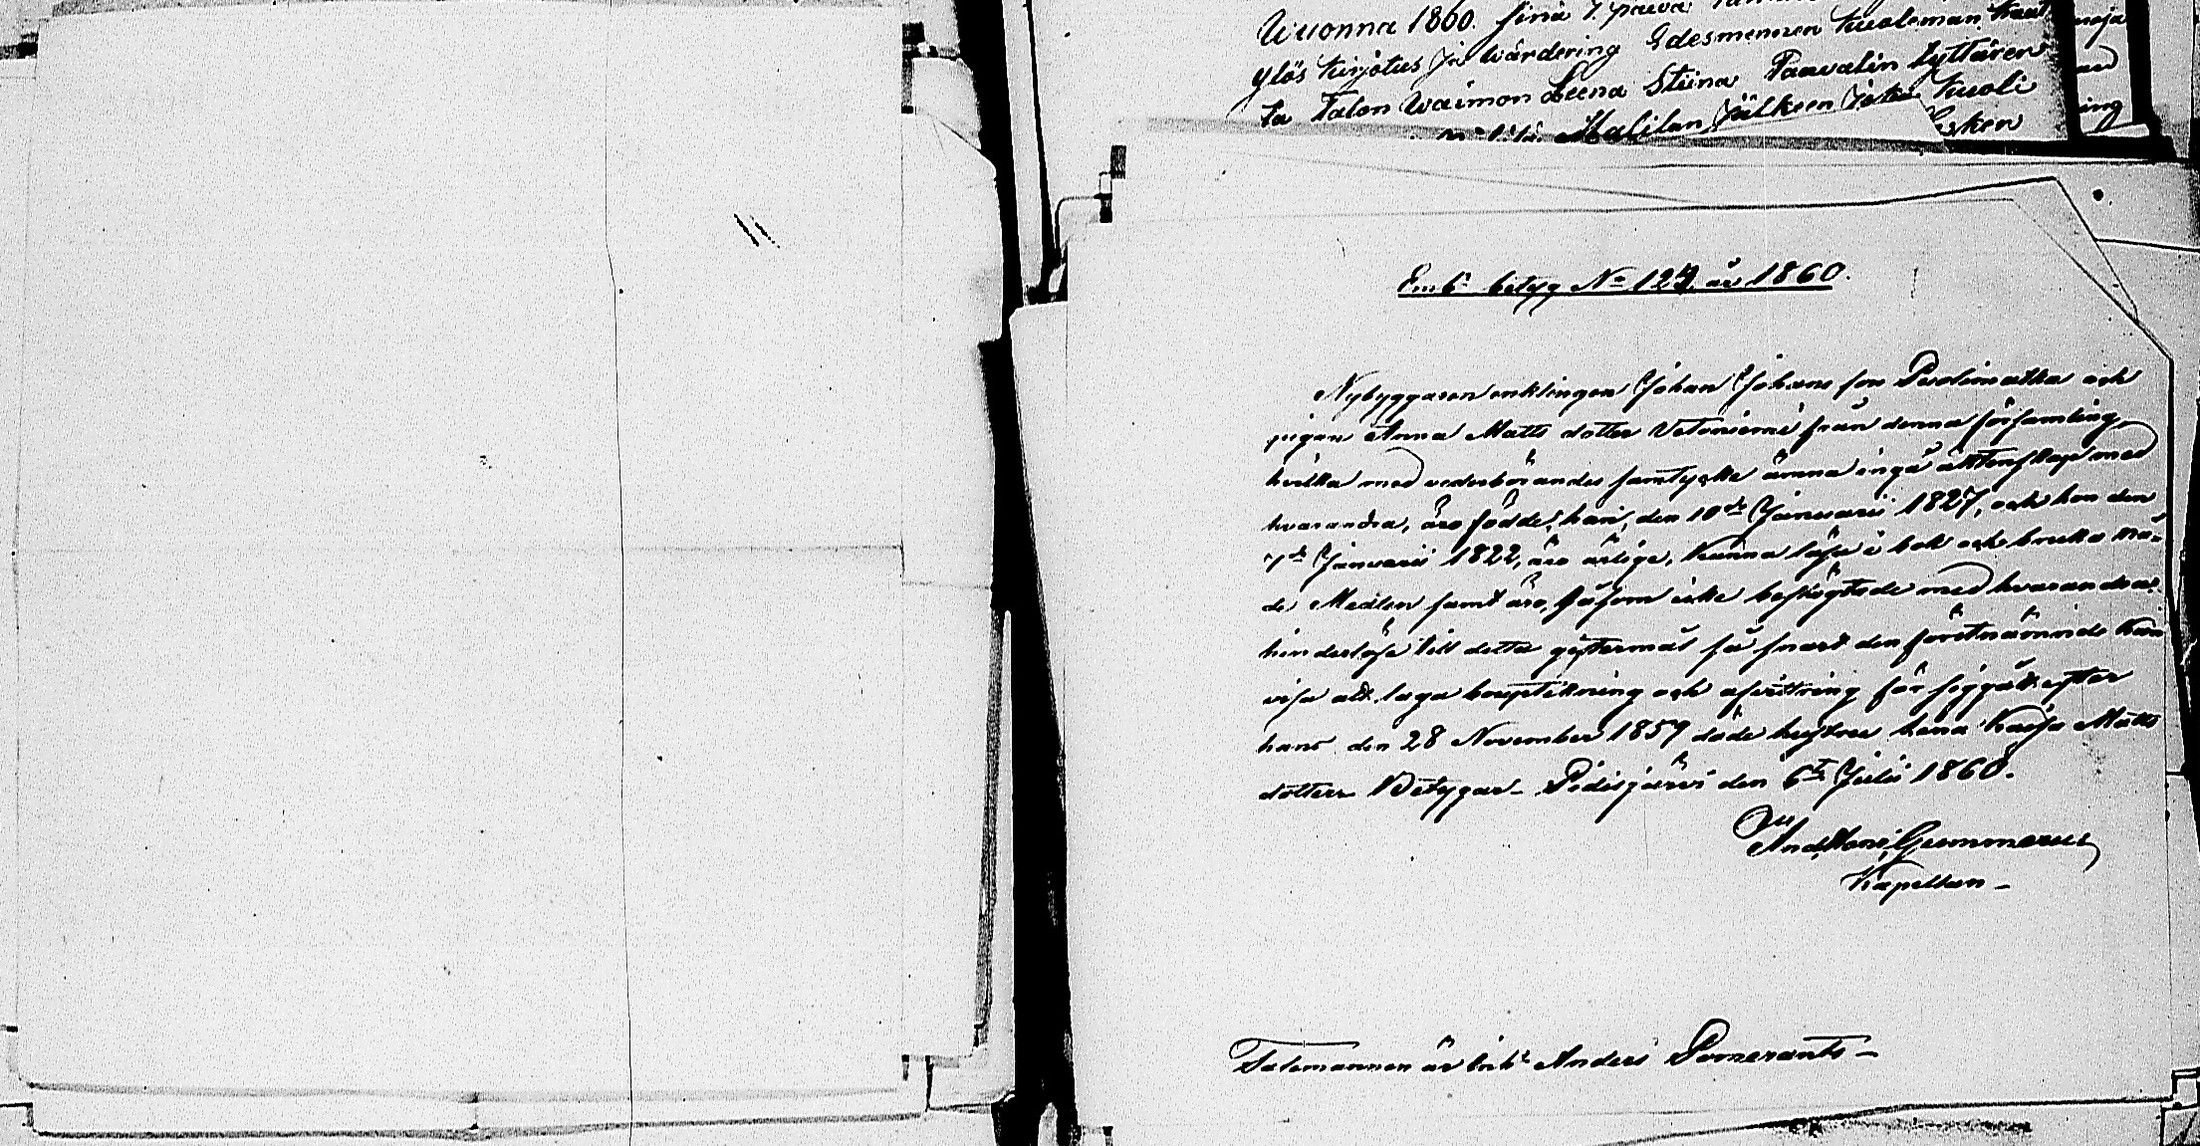 Wuonna 1860. sinä 7. päivä
ylös kirjotus ja wärdering Edesmennen kuoleman kaut
ta Talon Waimon Leena Stiina Paavalin tyttären
Malilan Jälkeen Joka kuoli
Lesken
Emb. betyg No 124 år 1860.
Nybyggaren enklingen Johan Johans son Puolimatka och
pigan Anna Matts dotter Vetoniemi från denna församling,
hvilka med vederbörandes samtycke ämna ingå äktenskap med
hvarandra, äro födde, han, den 10de Januarii 1827, och hon den
7de Januarii 1822, äro ärlige, kunna läsa i bok och bruka nå-
de Medlen samt äro, såsom icke beslägtade med hvarandra
hinderlöse till detta giftermål så snart den förstnämnde kan
visa att laga bouptekning och afvittring för siggått efter
hans den 28 November 1859 döde hustru Lena Kaisa Matts
dotter. Betygar. Pidisjärvi den 6te Julii 1860.
And. Joh. Gummerus
Kapellan
Talemannen är Anders Pomerants